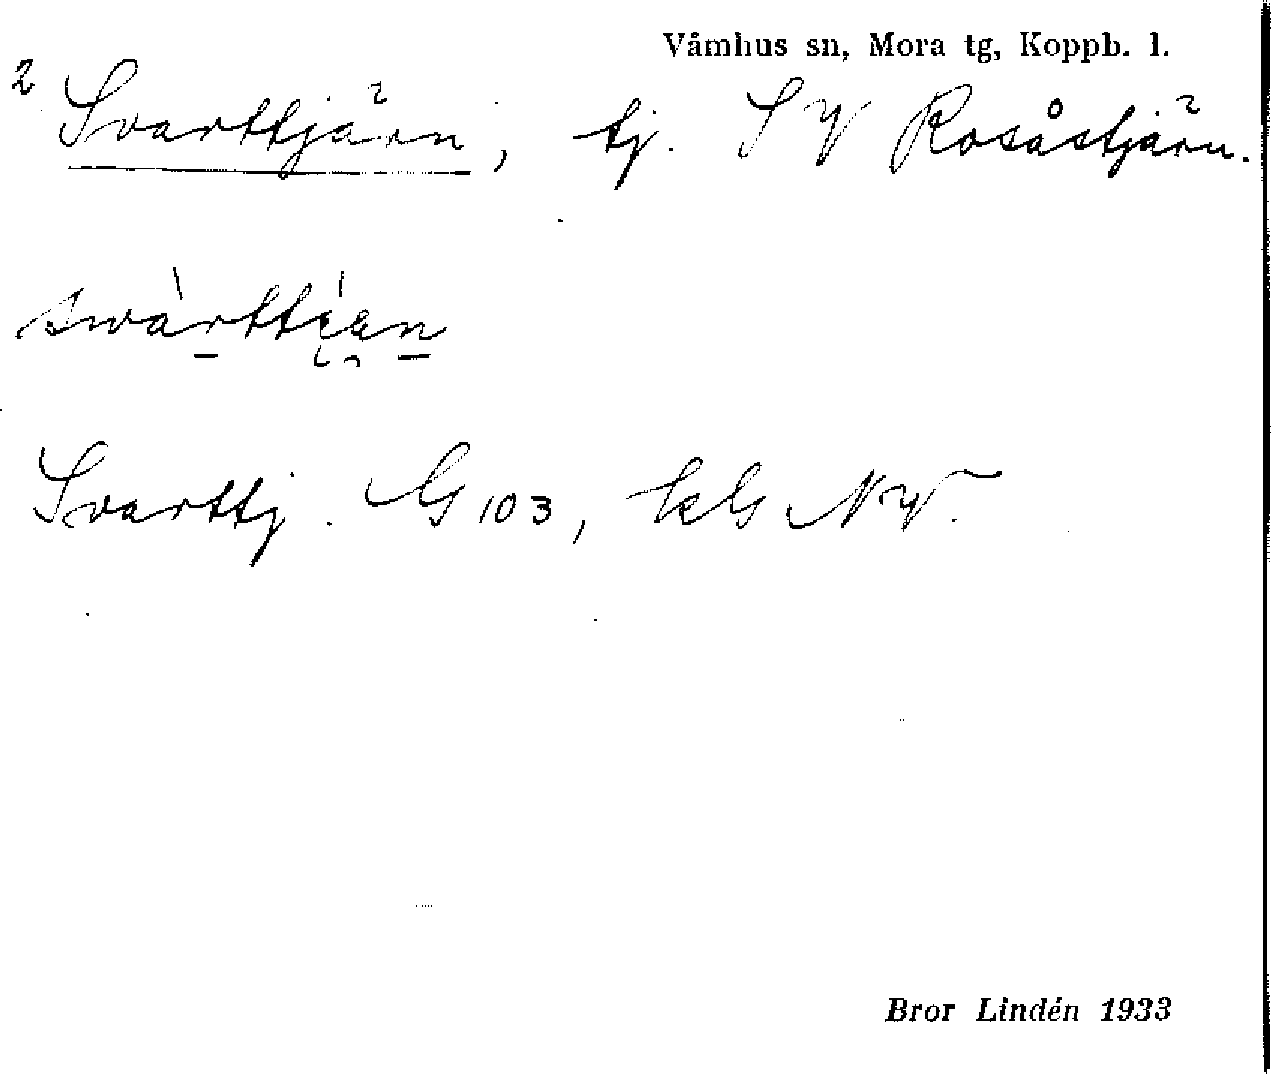 Våmhus sn, Mora tg, Koppb. l.
2 Svarttjärn, tj. SV Rosåstjärn.
Svarttj. G 103, bG NV.
Bror Lindén 1933